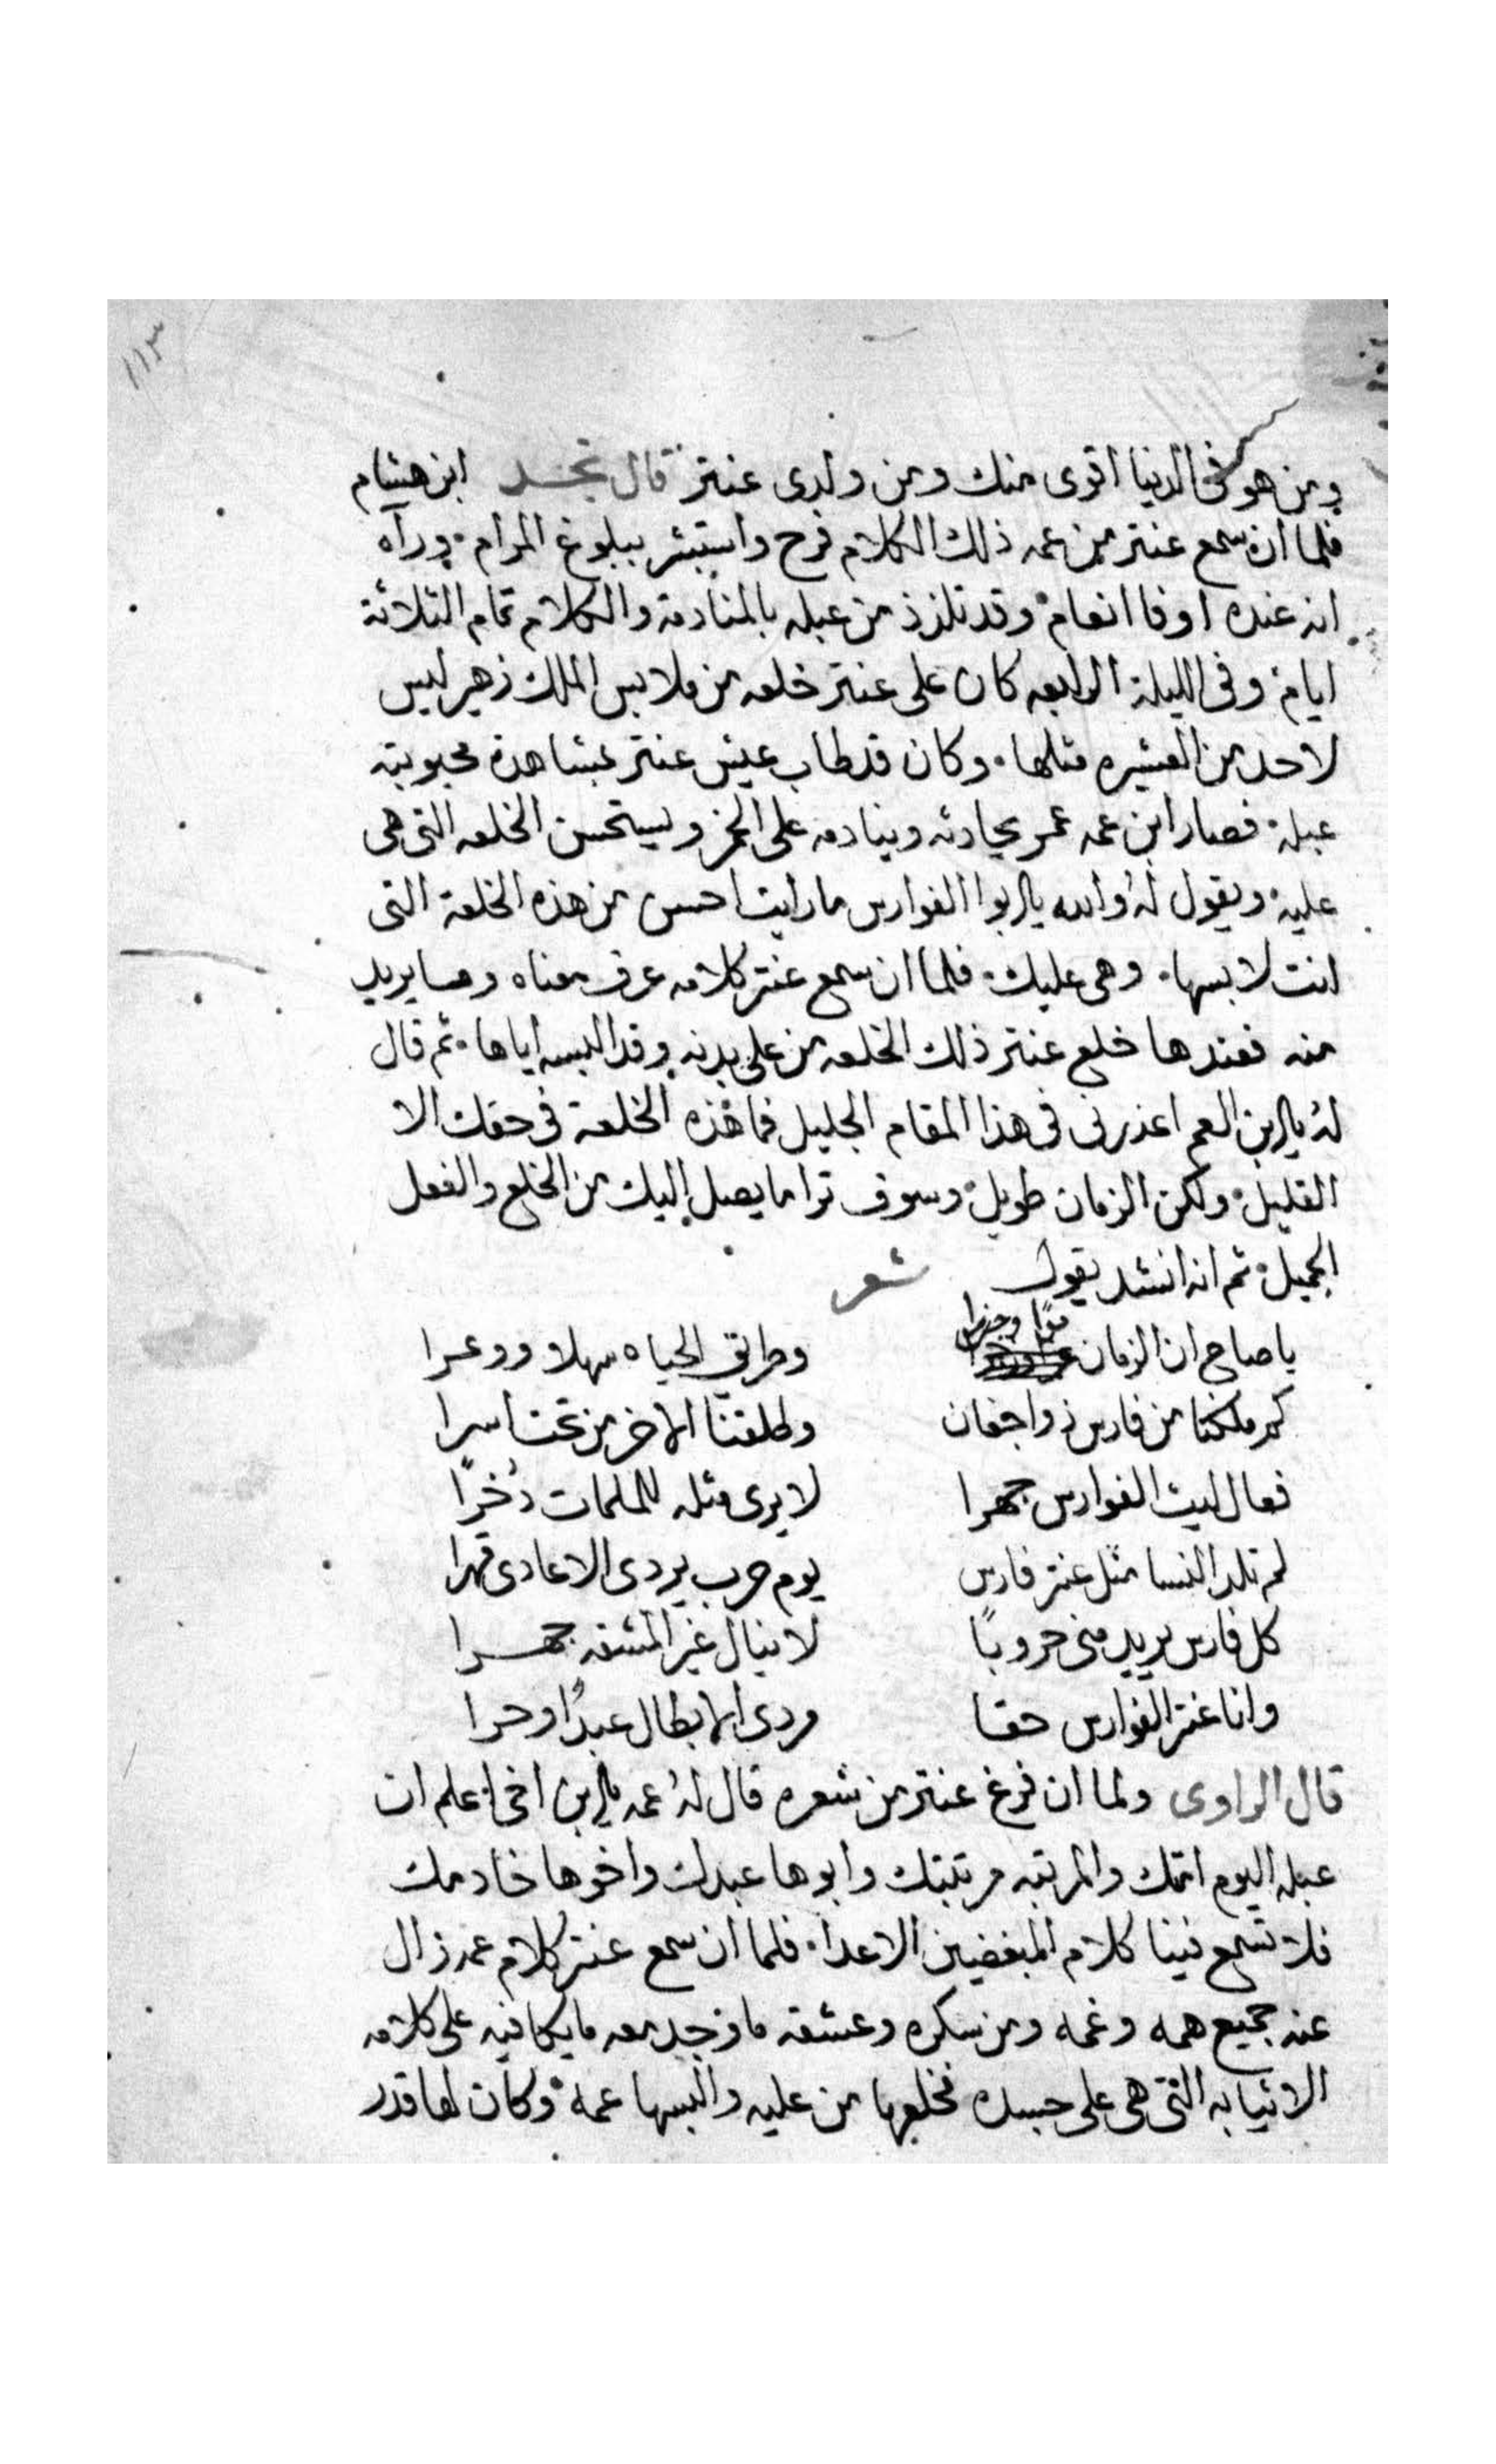 ١١٣
ومن هو فى الدنيا اقوى منك ومن ولدى عنتر قال نجد ابن هشام
فلما ان سمع عنتر من عمه ذلك الكلام فرح واستبشر ببلوغ المرام ورآه
انه عنده اوفا انعام وقد تلذذ من عبله بالمنادمة والكلام تمام الثلاثة
ايام وفى الليلة الرابعه كان على عنتر خلعه من ملابس الملك زهير ليس
لاحد من العشيره مثلها وكان قد طاب عيش عنتر بمشاهدة محبوبته
عبلة فصار ابن عمه عمر يحادثه وينادمه على الخمر ويستحسن الخلعه التى هى
عليه ويقول له والله يا ابوا الفوارس ما رايت احسن من هذه الخلعة التى
انت لابسها وهى عليك فلما ان سمع عنتر كلامه عرف معناه وما يريد
منه فعندها خلع عنتر ذلك الخلعه من على بدنه وقد البسه اياها ثم قال
له يا ابن العم اعذرنى فى هذا المقام الجليل فما هذه الخلعة فى حقك الا
القليل ولكن الزمان طويل وسوف ترا ما يصل اليك من الخلع والفعل
الجميل ثم انه انشد يقول شعر
يا صاح ان الزمان مرًا وطريق الحياه سهلا ووعرا
كم ملكنا من فارس ذو اجفان وطلقنا الاخر من تحت اسرا
فعال ليث الفوارس جهرا لا يرى مثله للملمات ذخرًا
لم تلد النسا مثل عنتر فارس يوم حرب يردى الاعادى قهرا
كل فارس يريد منى حروبًا لا ينال غير المشقه جهرا
وانا عنتر الفوارس حقا مردى الابطال عبدًا وحرا
قال الراوى ولما ان فرغ عنتر من شعره قال له عمه يا ابن اخى اعلم ان
عبله اليوم امتك والمرتبه مرتبتك وابوها عبدك واخوها خادمك
فلا تسمع فينا كلام المبغضين الاعدا فلما ان سمع عنتر كلام عمه زال
عنه جميع همه وغمه ومن سكره وعشقه ما وجد معه ما يكافيه على كلامه
الا ثيابه التى هى على جسده فخلعها من عليه والبسها عمه وكان لها قدر